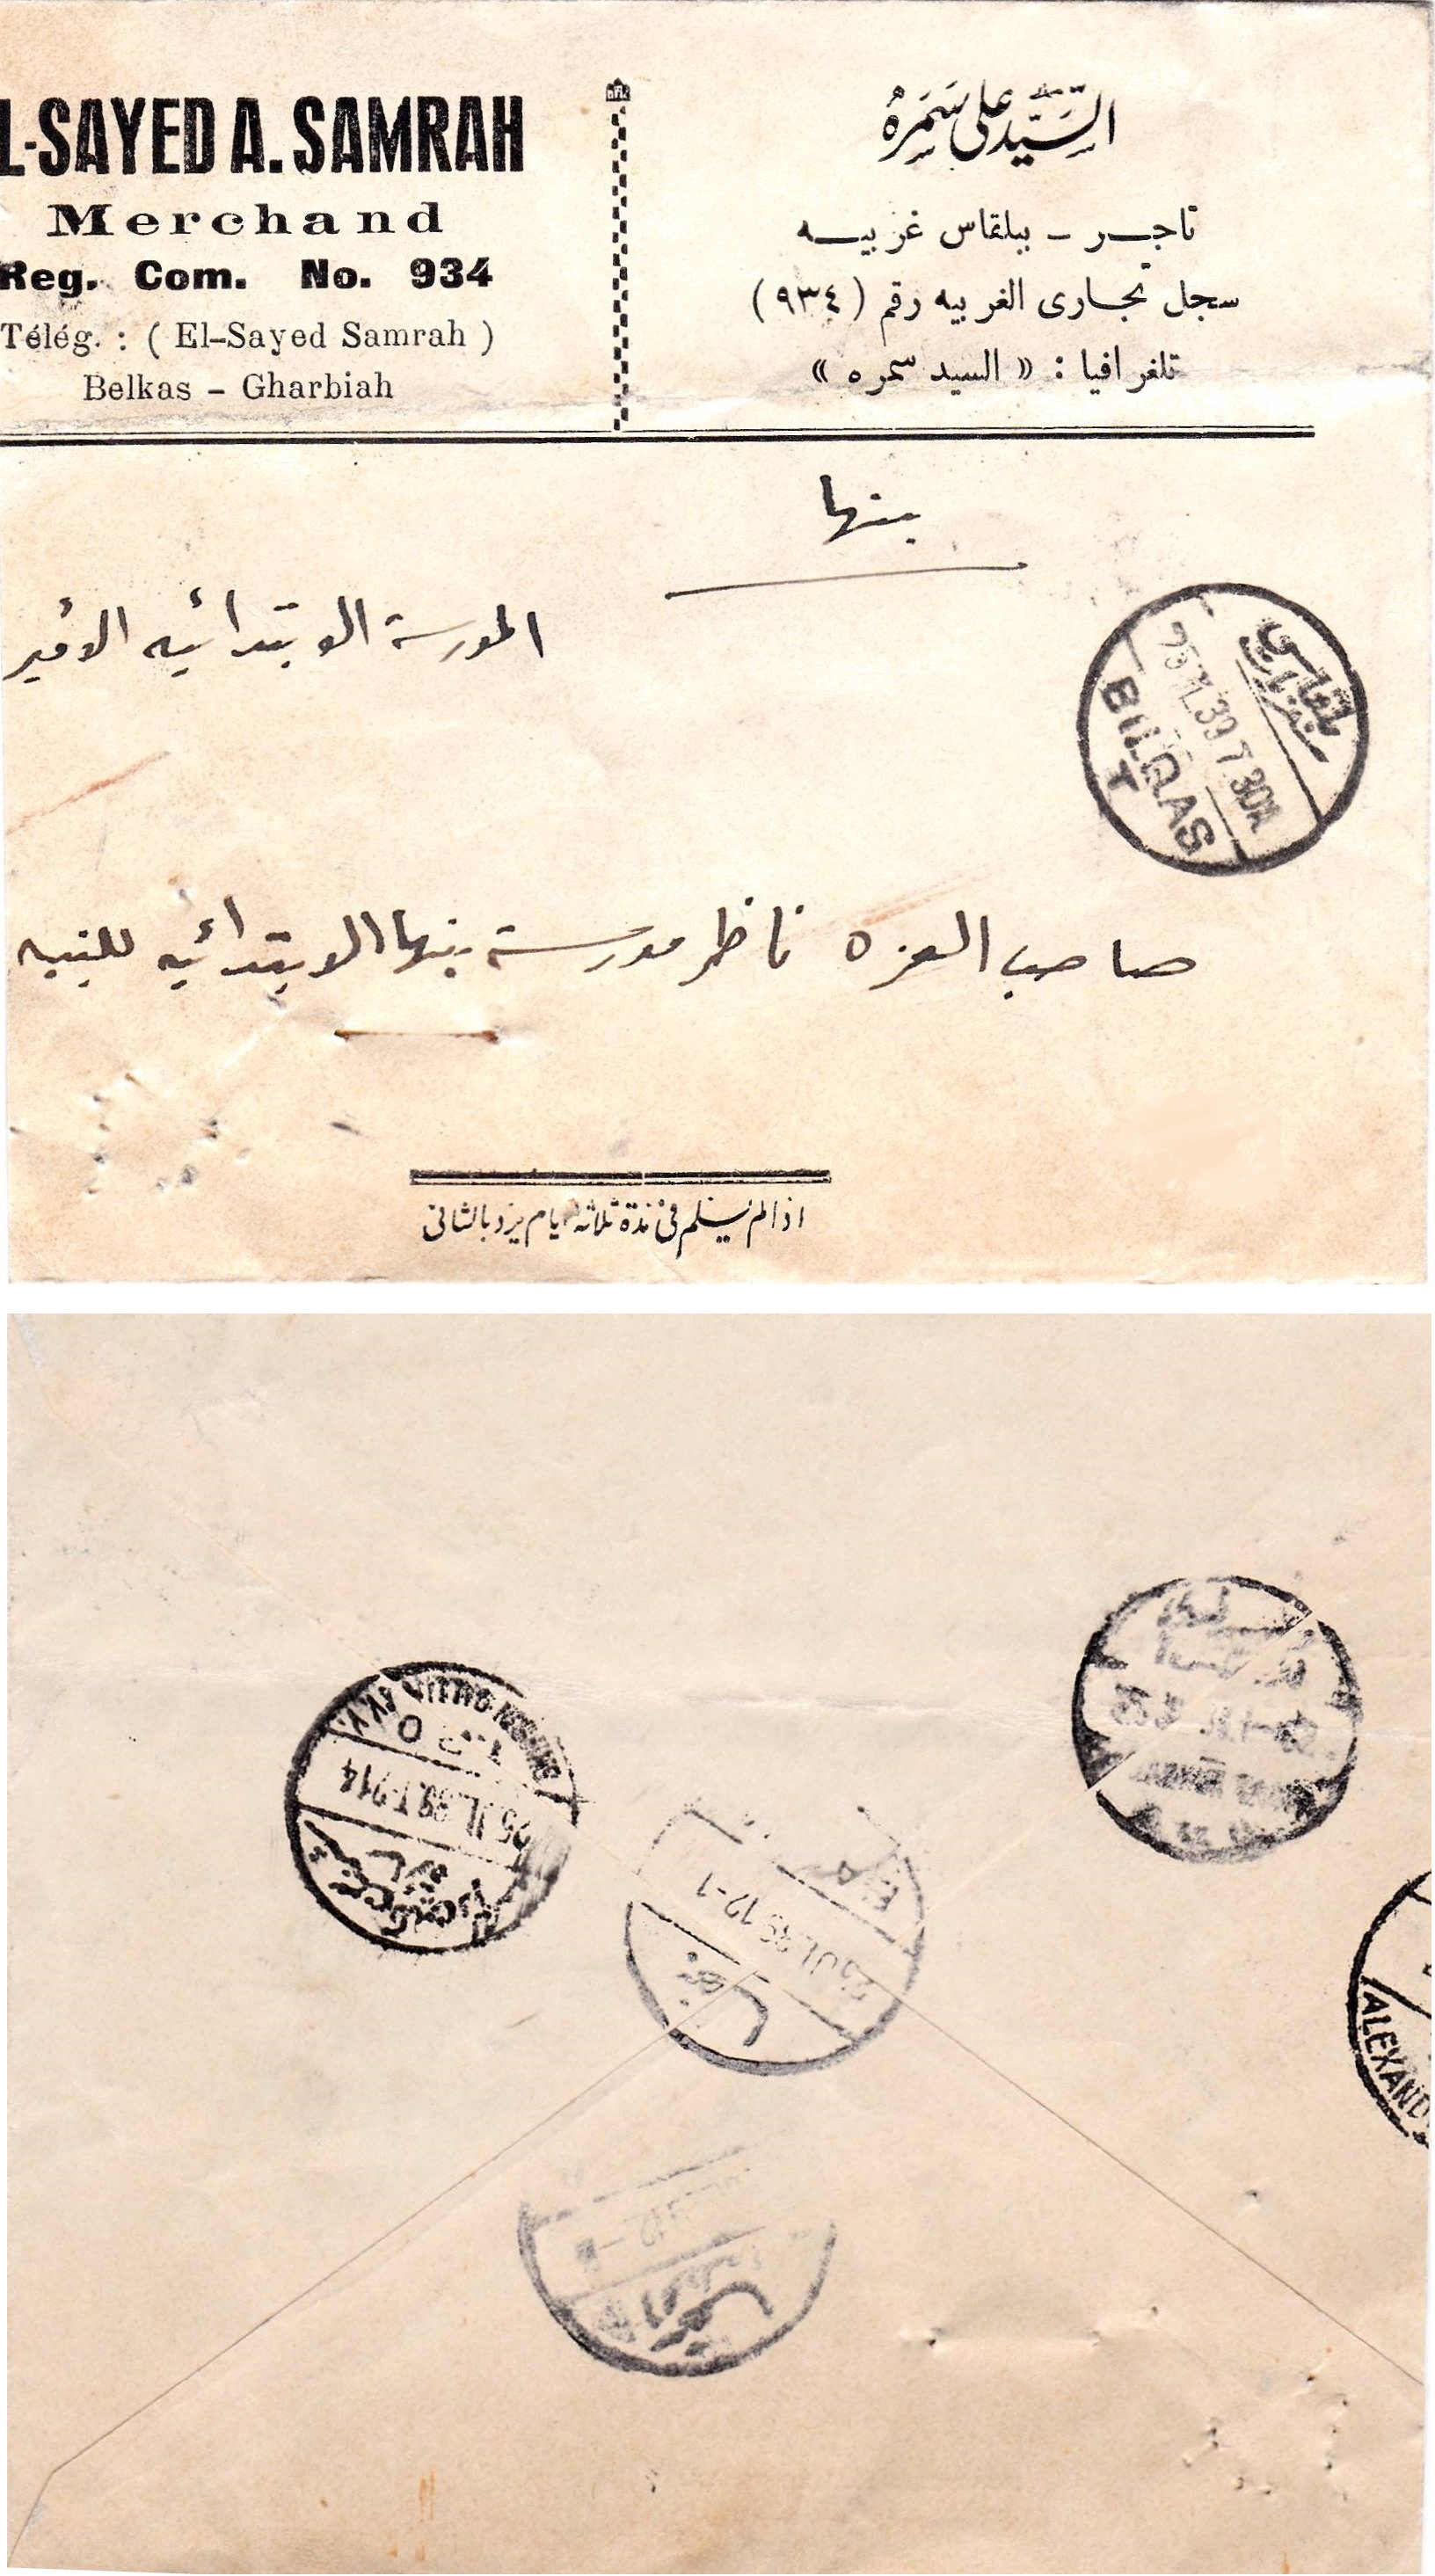 L-SAYED A. SAMRAH
Merchand
Reg. Com. No. 934
Télég. : ( El-Sayed Samrah )
Belkas - Gharbiah
السَّيِّد على سَمَرَهْ
تاجر - ببلقاس غربيه
سجل تجارى الغربيه رقم ( ٩٣٤ )
تلغرافيا : « السيد سمره »
بنها
المدرسة الابتدائيه الأمير
بلقاس
25 JL 39 7 30A
BILQAS
T
صاحب العزه ناظر مدرسة بنها الابتدائيه للبنين
اذا لم يتسلم فى مدة ثلاثة ايام يرد بالثانى
T.P.O
25 JL 39 T-214
25 JL 39 12-1
بنها
ALEXAND